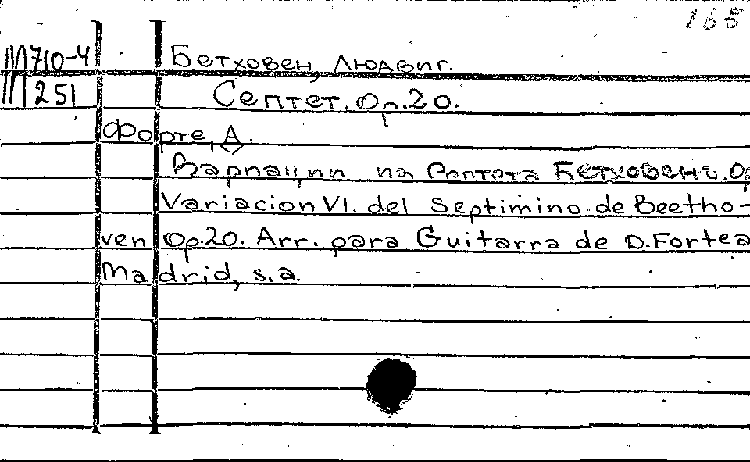 165
М710-4 Бетховен, Людвиг.
М251 Септет. Op.20.
Форте, Д.
Вариации из Септета Бетховена. Op
Variacion VI. del Septimino de Beetho-
ven Op20. Arr. para Guitarra de D.Fortea
Madrid, s.a.